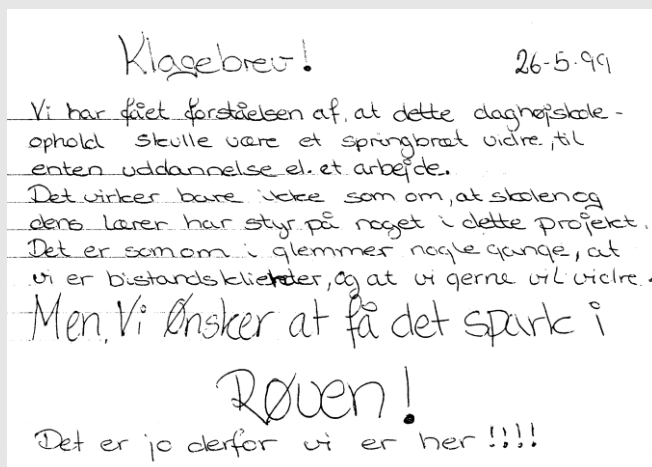 Klagebrev! 26-5-99
Vi har fået forståelsen af, at dette daghøjskole-
ophold skulle være et springbræt vidre, til
enten uddannelse el. et arbejde.
Det virker bare ikke som om, at skolen og
dens lærer har styr på noget i dette projekt.
Det er som om i glemmer nogle gange, at
vi er bistandsklienter, og at vi gerne vil vidre.
Men, Vi Ønsker at få det spark i
RØVen!
Det er jo derfor vi er her !!!!